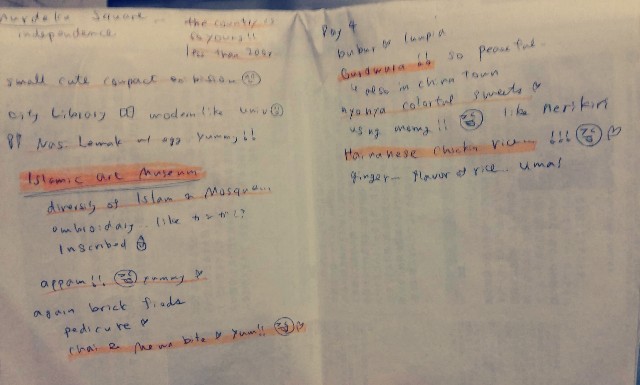 Merdeka Square
independence
the country is
so young!!
less than 200yr
small cute compact
City Library modern like univ
Nasi Lemak w/ egg yummy!!
Islamic art Museum
diversity of Islam & Mosque
embroidary.. like
Inscribed
appam!! yummy ♡
again brick finds
pedicure ♡
chai & bite ♡ yum!! ♡
Day 4
bubur ♡ lumpia
Gurdwara !! so peaceful
↳ also in china town
nyonya colorful sweets ♡
using !! like
Hainanese chicken rice !!! ♡
ginger flavor of rice. umai